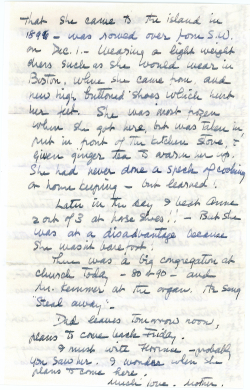 that she came to the island in
189 - was rowed over from S.W.
on Dec. 1. - Wearing a light weight
dress such as she would wear in
Boston, when she came now, and
new high buttoned shoes which hurt
her feet. She was most frozen
when she got here, but was taken in
put in front of the kitchen stove, &
given ginger tea to warm her up.
She had never done a speck of cooking
or home keeping - but learned!
Later in the day I beat Anne
2 out of 3 at horse shoes!! - But she
was at a disadvantage because
she wasn't barefoot.
There was a big congregation at
church today - 80 to 90 - and
Mr. Kemmer at the organ. He sang
"Steal away".
Dad leaves tomorrow noon,
plans to come back Friday.
I must write Florence - probably
you saw her. I wonder when she
plans to come here.
Much love - Mother.